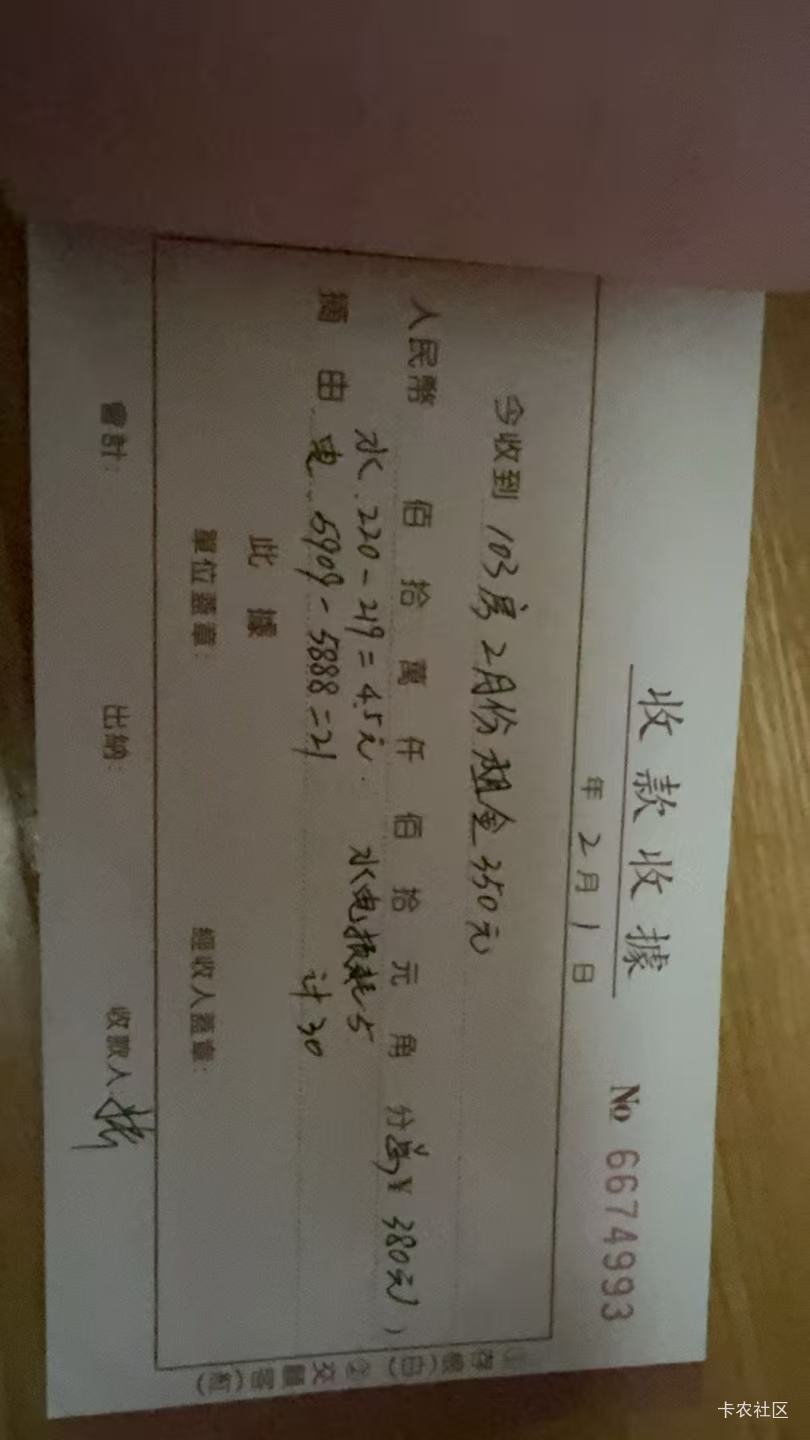 收款收據
No 6674993
年 2 月 1 日
今收到 103房2月份租金350元
人民幣 佰 拾 萬 仟 佰 拾 元 角 分 ¥ 380元)
水 220-219=4.5元. 水电损耗5
摘由 电 5909-5888=21 计30
此據
單位蓋章: 經收人蓋章:
會計: 出納: 收款人
①存根(白) ②交顧客(紅)
卡农社区